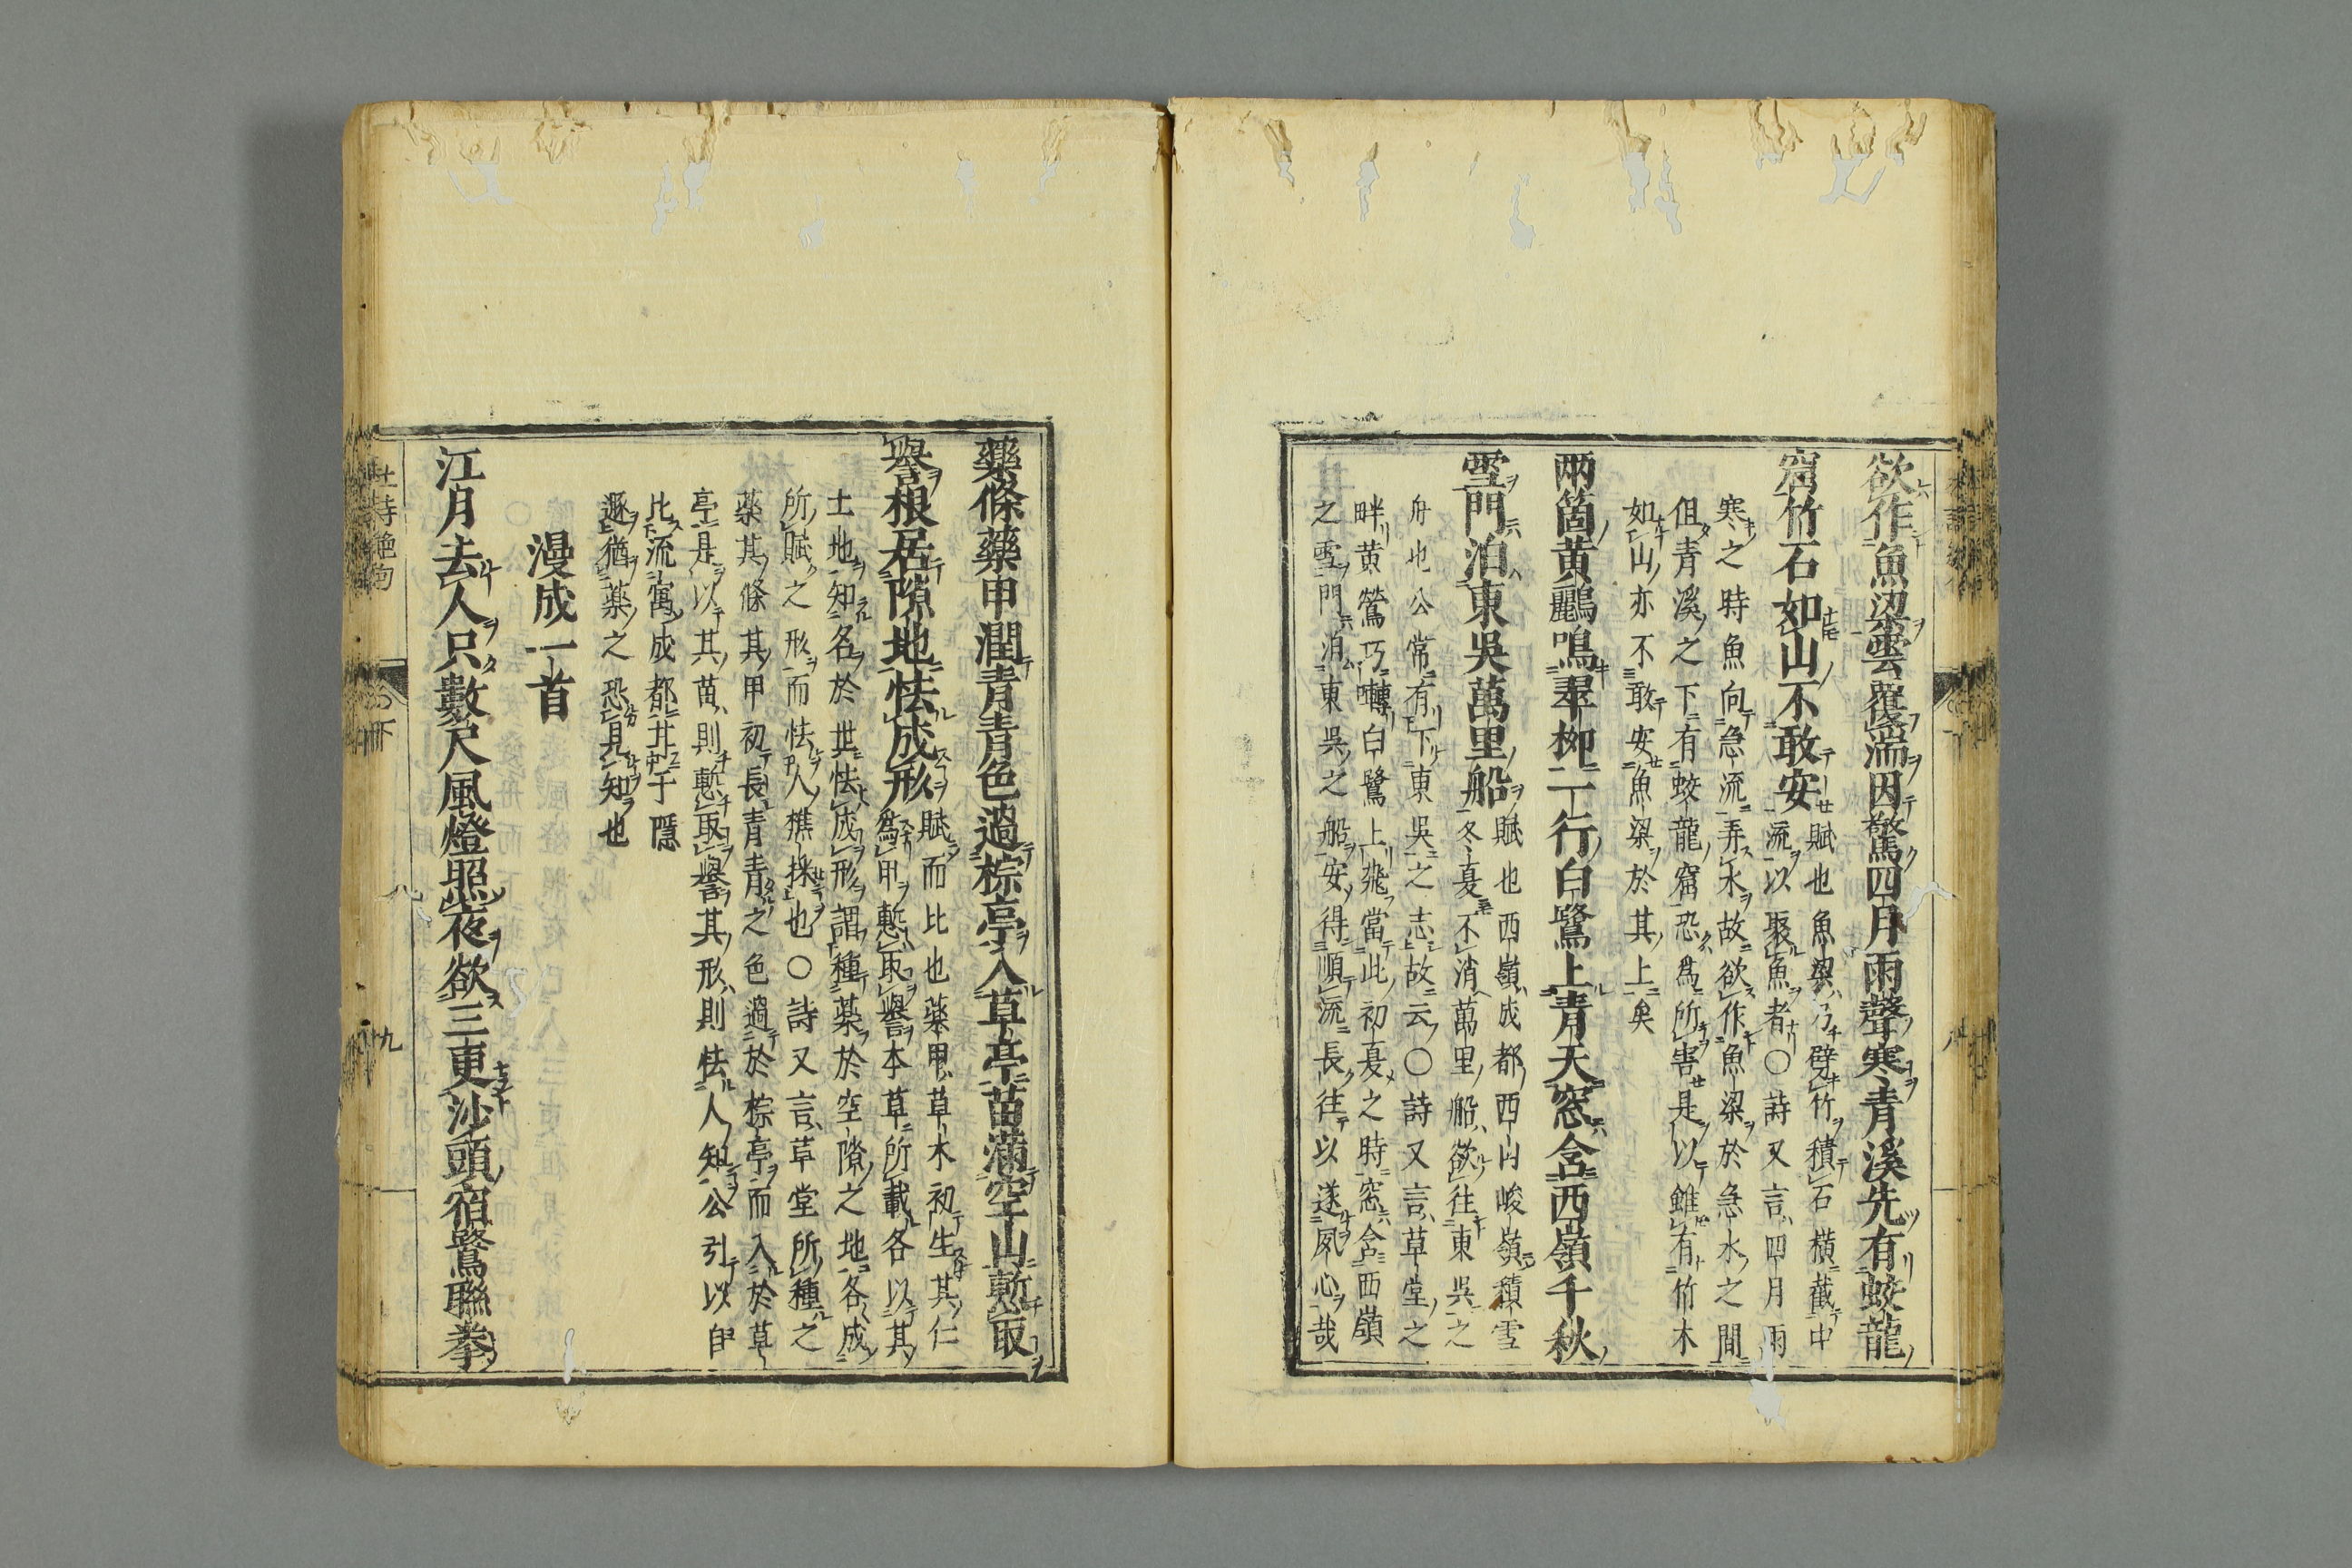 欲作魚梁雲覆湍因驚四月雨聲寒青溪先有蛟龍
窟竹石如山不敢安賦也魚梁乃劈竹積石橫截中
流以聚魚者○詩又言四月雨
寒之時魚向急流弄水故欲作魚梁於急水之間
但青溪之下有蛟龍窟恐為所害是以雖有竹木
如山亦不敢安魚梁於其上矣
兩箇黃鸝鳴翠柳一行白鷺上青天窓含西嶺千秋
雪門泊東吳萬里船賦也西嶺成都西山峻嶺積雪
冬夏不消萬里船欲往東吳之
舟也公常有下東吳之志故云○詩又言草堂之
畔黃鶯巧囀白鷺上飛當此初夏之時窓含西嶺
之雪門泊東吳之船安得順流長往以遂夙心哉
藥條藥甲潤青青色過棕亭入草亭苗滿空山慙取
譽根居隙地怯成形賦而比也藥甲草木初生其仁
為甲慙取譽本草所載各以其
土地知名於世怯成形謂種藥於空隙之地各成
所賦之形而怯人樵採也○詩又言草堂所種之
藥其條其甲初長青青之色過於棕亭而入於草
亭是以其苗則慙取譽其形則怯人知公引以自
比流寓成都甘于隱
遯猶藥之恐見知也
漫成一首
江月去人只數尺風燈照夜欲三更沙頭宿鷺聯拳
九